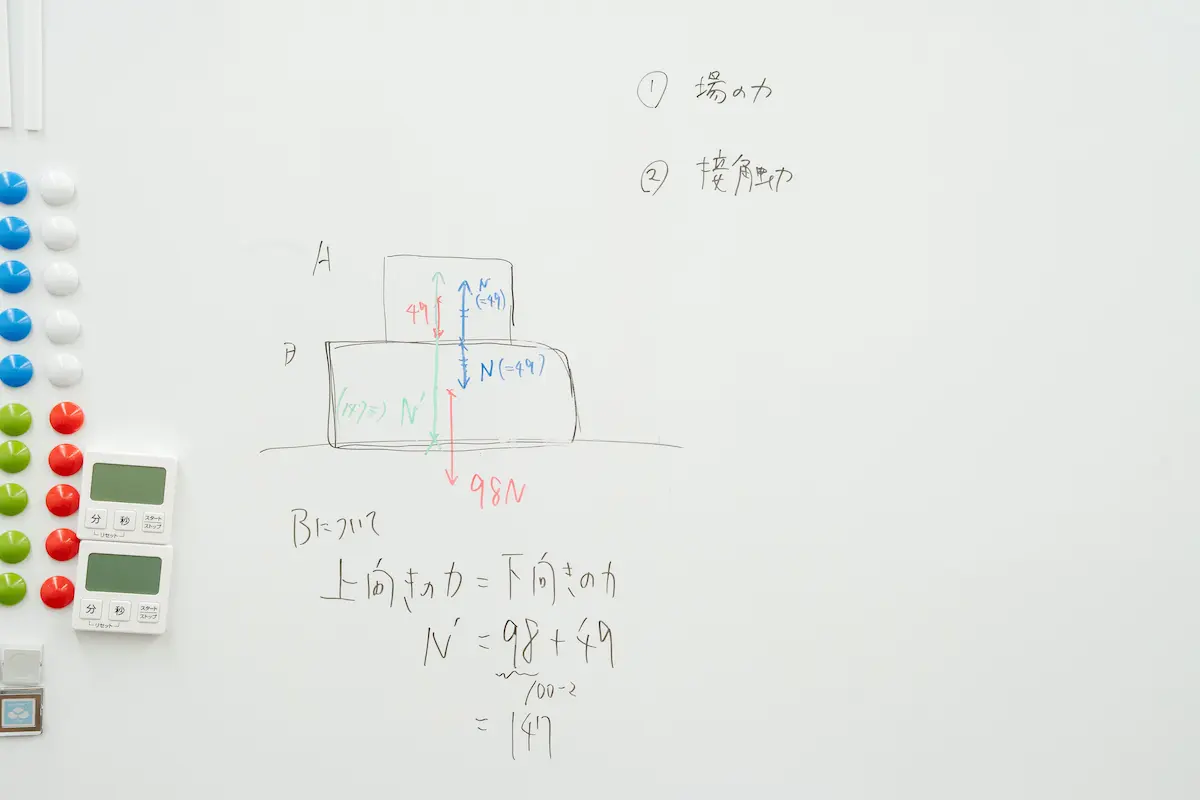 ① 場の力
② 接触力
A
N
(=49)
49
B
N(=49)
(147=) N'
98N
Bについて
上向きの力 = 下向きの力
N' = 98 + 49
100-2
= 147
分 秒 スタート ストップ
リセット
分 秒 スタート ストップ
リセット